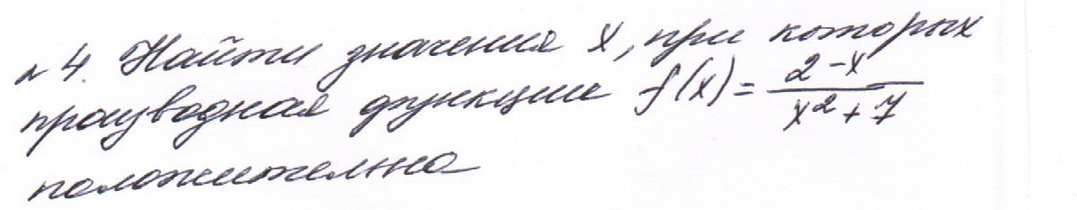 №4. Найти значения x, при которых
производная функции f(x) = \frac{2-x}{x^2+7}
положительна